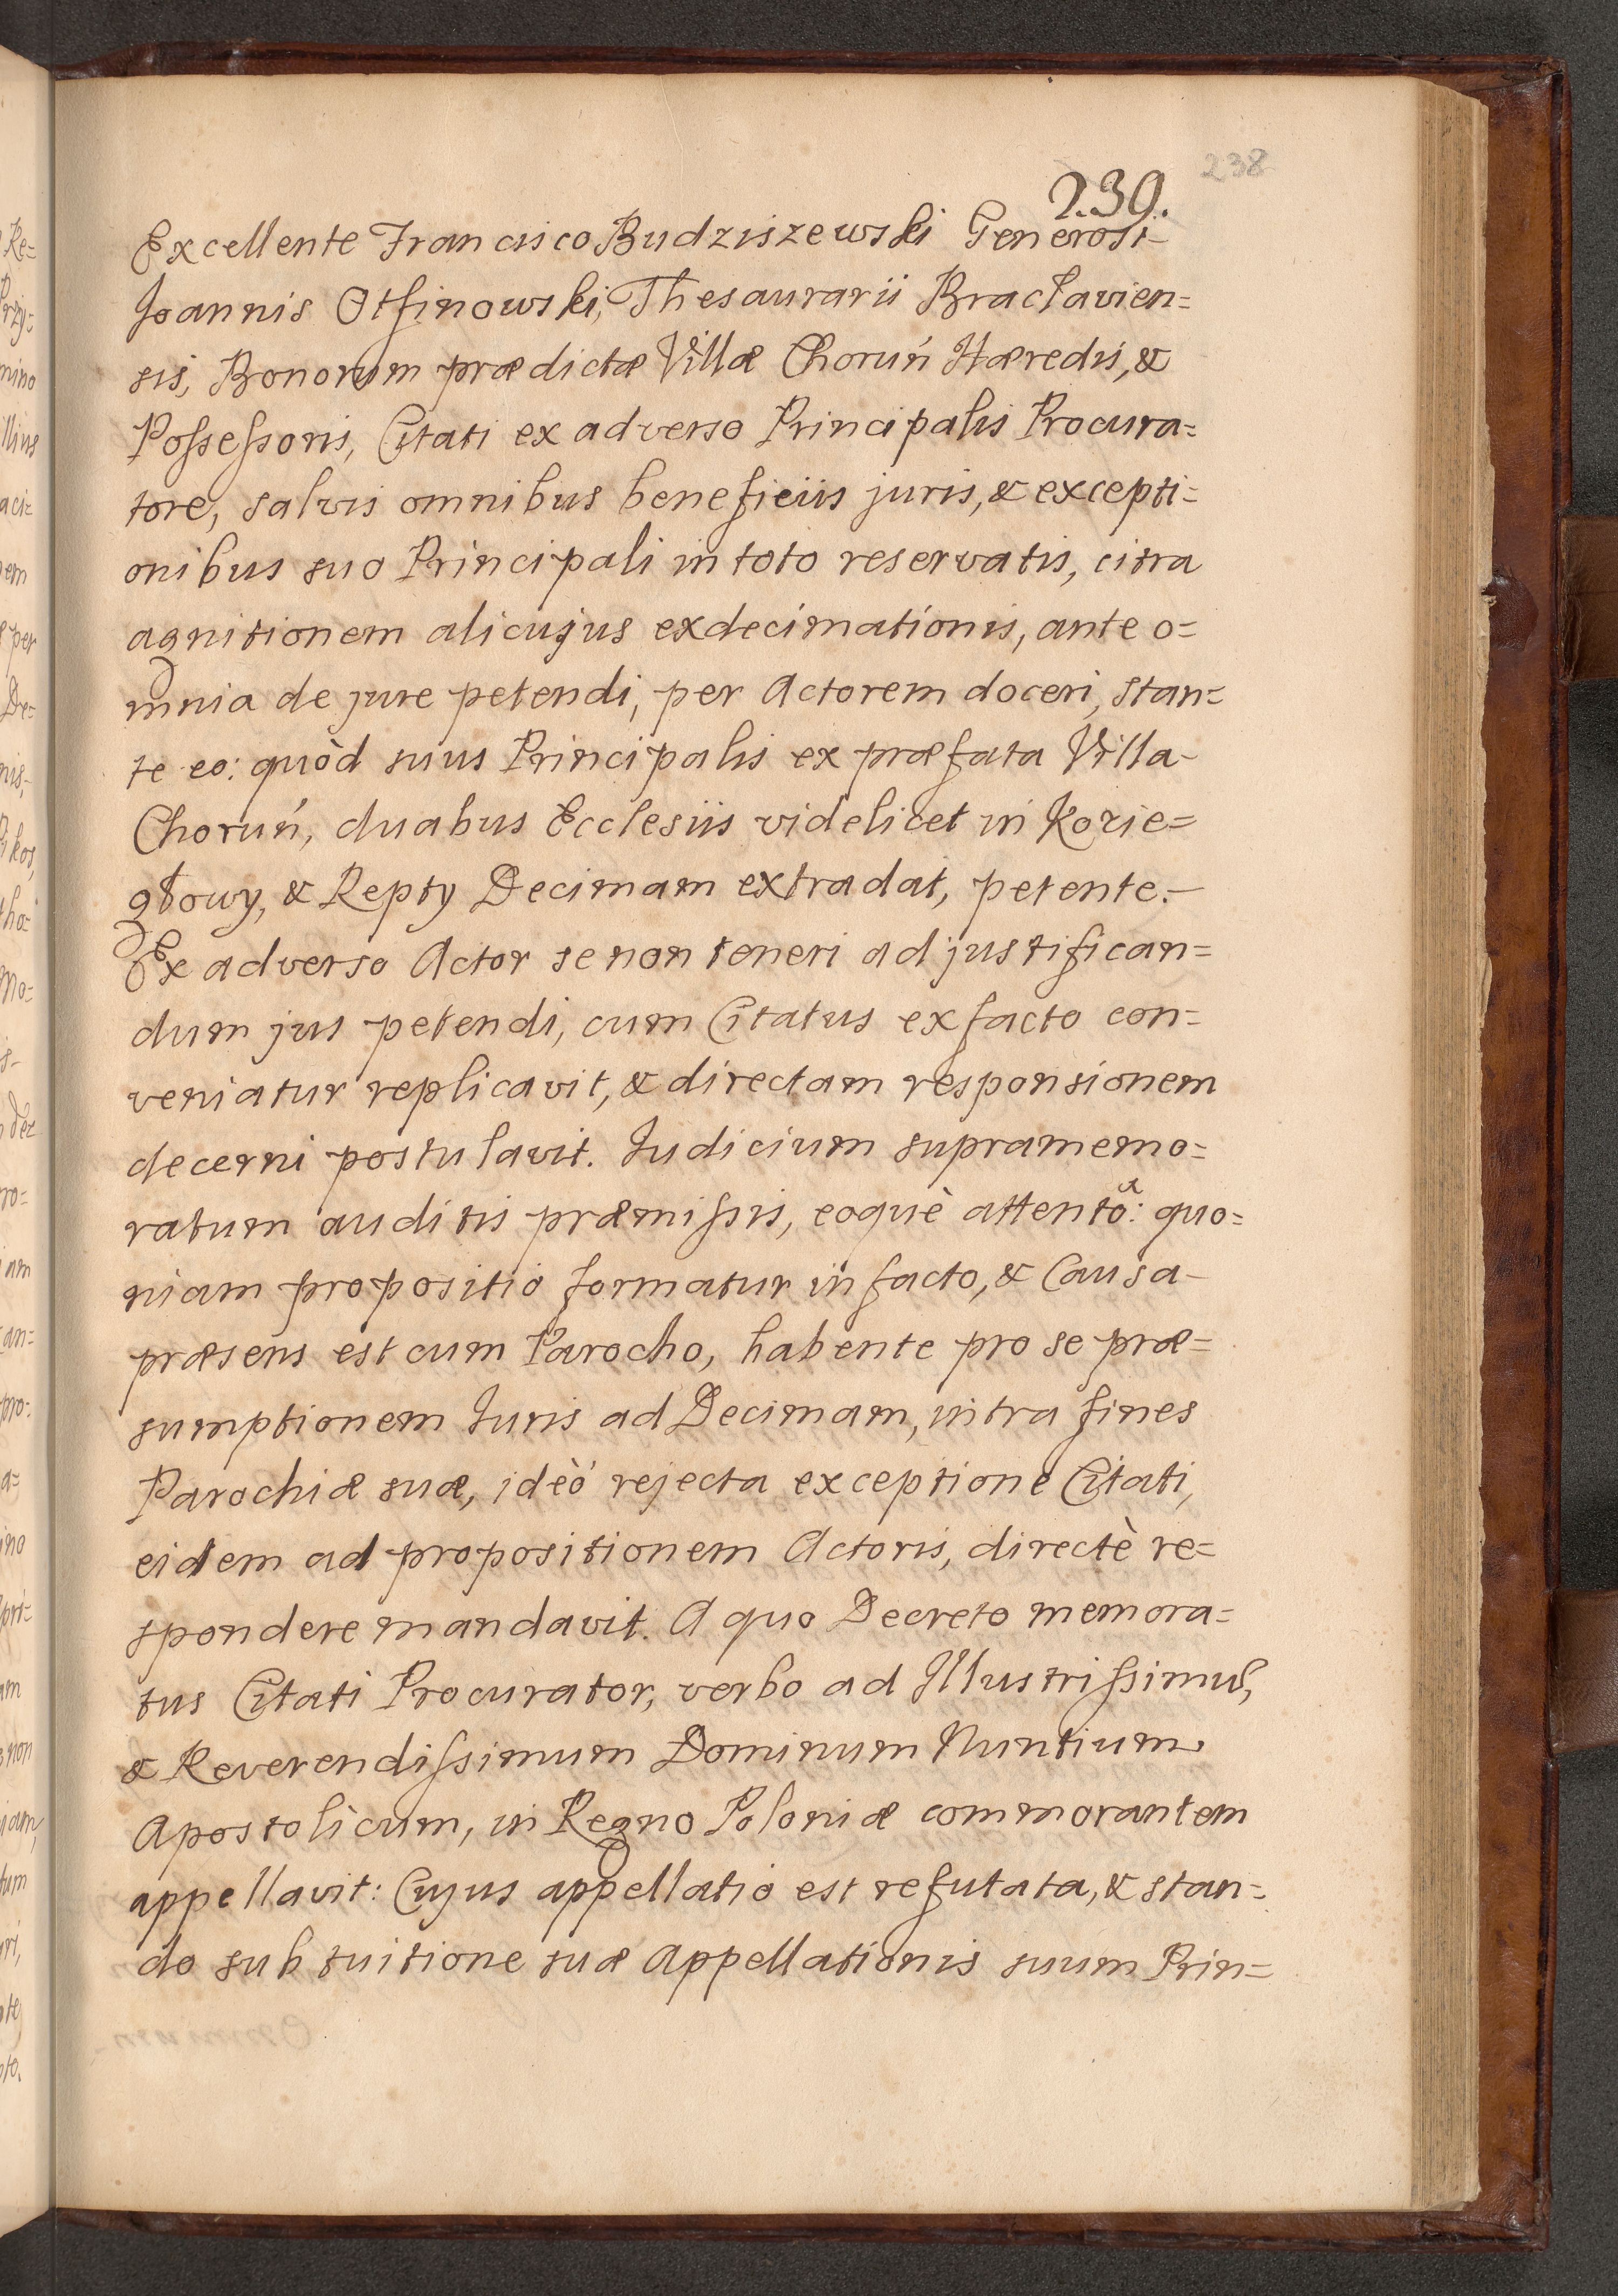 238
239.
Excellente Francisco Budziszewski Generosi-
Joannis Otfinowski, Thesaurarii Bracłavien=
sis, Bonorum prædictæ Villæ Choruń Hæredis, &
Poſseſsoris, Citati ex adverso Principalis Procura=
tore, salvis omnibus beneficiis juris, & excepti=
onibus suo Principali in toto reservatis, citra
agnitionem alicujus exdecimationis, ante o=
mnia de jure petendi, per Actorem doceri, stan=
te eo: quòd suus Principalis ex præfata Villa-
Choruń, duabus Ecclesiis videlicet in Kozie=
głowy, & Repty Decimam extradat, petente.-
Ex adverso Actor se non teneri ad justifican=
dum jus petendi, cum Citatus ex facto con=
veniatur replicavit, & directam responsionem
decerni postulavit. Judicium supramemo=
ratum auditis præmiſsis, eoquè attentô: quo=
niam propositio formatur in facto, & Causa-
præsens est cum Parocho, habente pro se præ=
sumptionem Juris ad Decimam, intra fines
Parochiæ suæ, ideò rejecta exceptione Citati,
eidem ad propositionem Actoris, directè re=
spondere mandavit. A quo Decreto memora=
tus Citati Procurator, verbo ad Illustriſsimũ,
& Reverendiſsimum Dominum Nuntium
Apostolicum, in Regno Poloniæ commorantem
appellavit: Cujus appellatio est refutata, & stan=
do sub tuitione suæ Appellationis suum Prin=